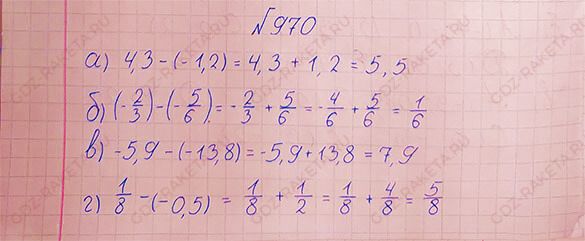 №970
а) 4,3 - (-1,2) = 4,3 + 1,2 = 5,5
б) (-2/3) - (-5/6) = -2/3 + 5/6 = -4/6 + 5/6 = 1/6
в) -5,9 - (-13,8) = -5,9 + 13,8 = 7,9
г) 1/8 - (-0,5) = 1/8 + 1/2 = 1/8 + 4/8 = 5/8